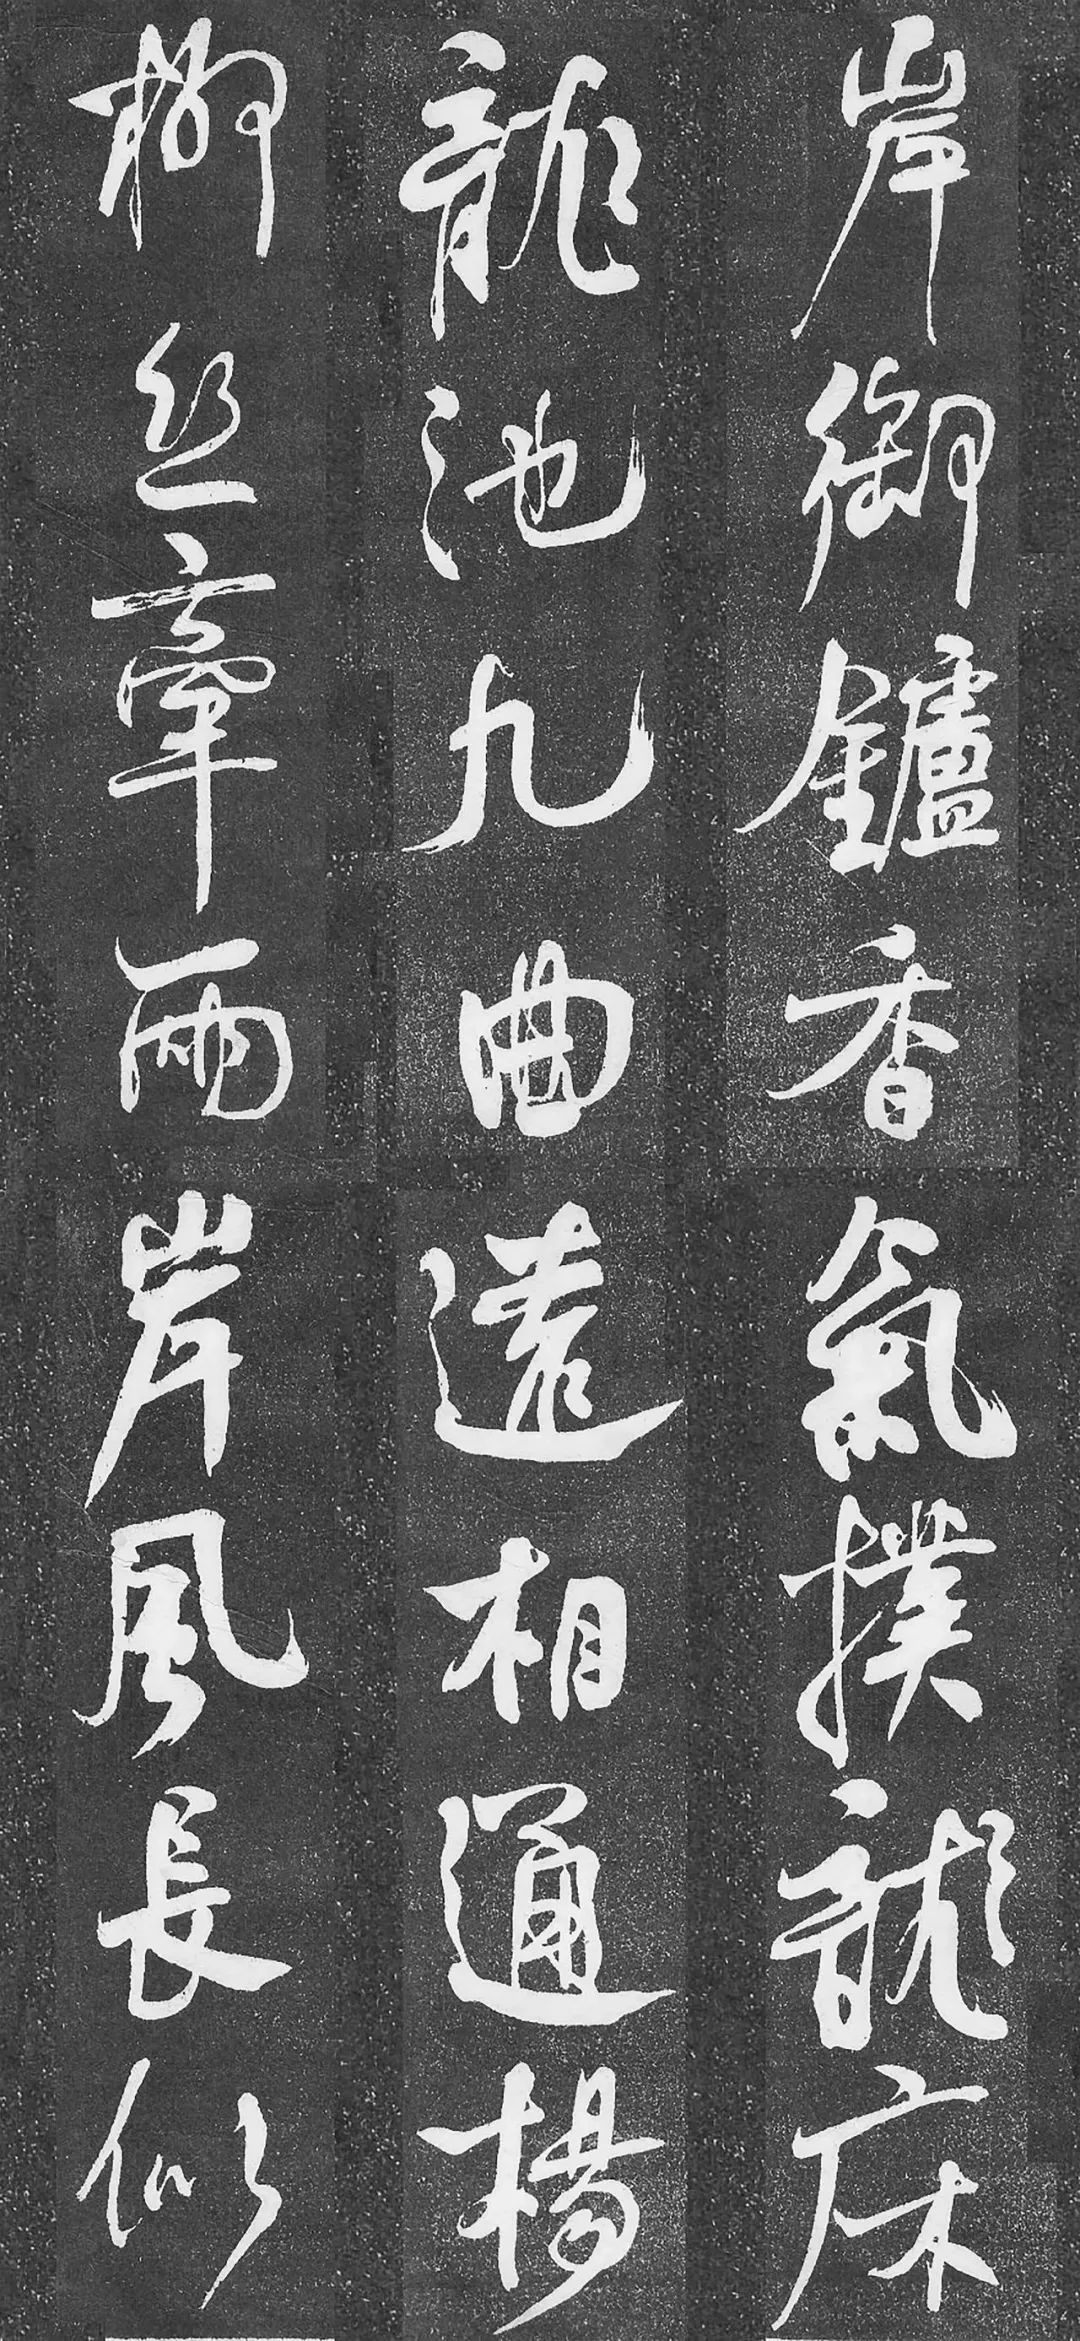 岸御鑪香氣撲龍床
龍池九曲遠相通楊
柳絲牽兩岸風長似